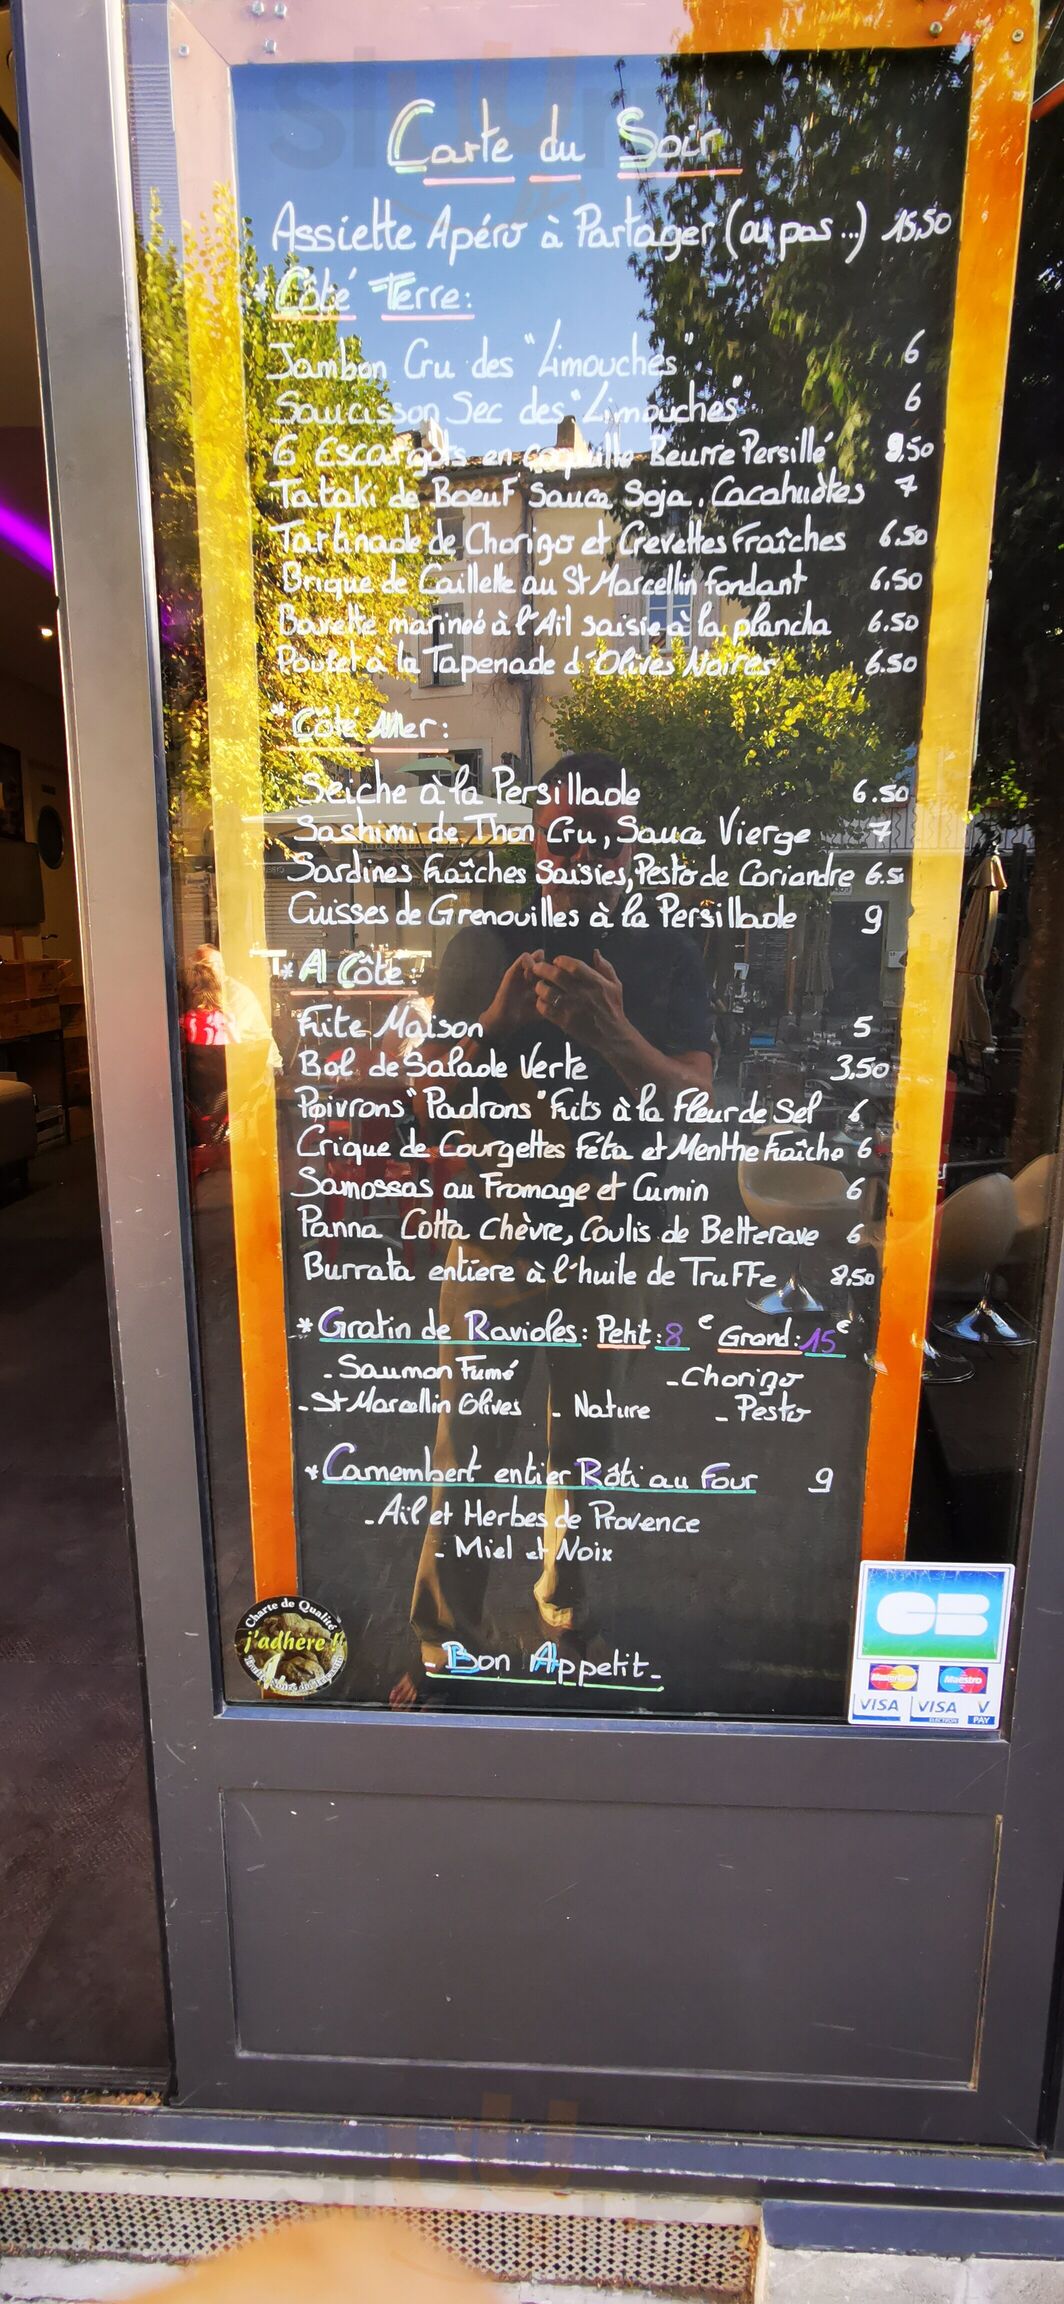 Carte du Soir
Assiette Apéro à Partager (ou pas...) 15,50
*Côté Terre:
Jambon Cru des "Limouches" 6
Saucisson Sec des "Limouches" 6
6 Escargots en coquille Beurre Persillé 9,50
Tataki de Boeuf Sauce Soja, Cacahuètes 7
Tartinade de Chorizo et Crevettes Fraîches 6.50
Brique de Caillette au St Marcellin fondant 6,50
Bavette marineé à l'Aïl saisie à la plancha 6.50
Poulet à la Tapenade d'Olives Noires 6.50
*Côté Mer:
Seiche à la Persillade 6.50
Sashimi de Thon Cru, Sauce Vierge 7
Sardines fraîches Saisies, Pesto de Coriandre 6.5
Cuisses de Grenouilles à la Persillade 9
*A Côté:
Frite Maison 5
Bol de Salade Verte 3,50
Poivrons "Padrons" frits à la Fleur de Sel 6
Crique de Courgettes Féta et Menthe Fraîche 6
Samossas au Fromage et Cumin 6
Panna Cotta Chèvre, Coulis de Betterave 6
Burrata entiere à l'huile de Truffe 8,50
*Gratin de Ravioles: Petit: 8€ Grand: 15€
-Saumon Fumé -Chorizo
-St Marcellin Olives - Nature - Pesto
*Camembert entier Rôti au Four 9
-Aïl et Herbes de Provence
- Miel et Noix
- Bon Appetit -
Charte de Qualité
j'adhère !!
CB
MasterCard Maestro
VISA VISA V
ELECTRON PAY